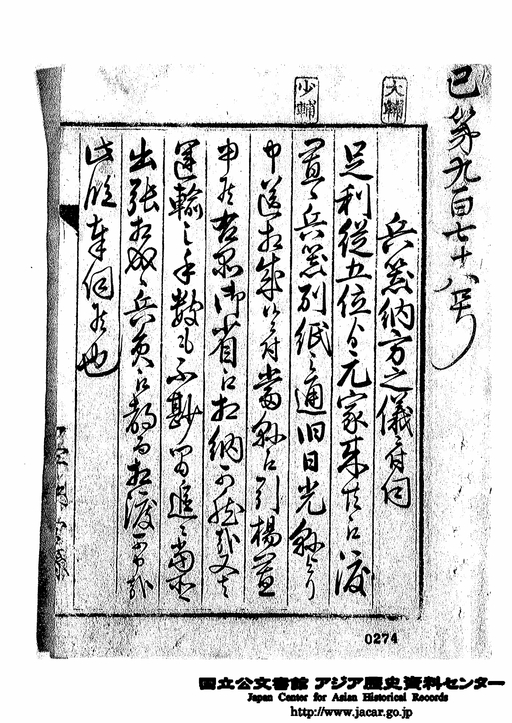 巳第九百七十八号
大輔
少輔
兵器納方之儀ニ付伺
足利従五位ゟ元家来共江渡
置候兵器別紙之通旧日光県ゟ
申送相成候ニ付当県江引揚置
申候右品御省江相納可然哉又者
運輸之手数も不尠候間追而当所
出張相成候兵員江都而相渡可申哉
此段奉伺候也
0274
国立公文書館 アジア歴史資料センター
Japan Center for Asian Historical Records
http://www.jacar.go.jp